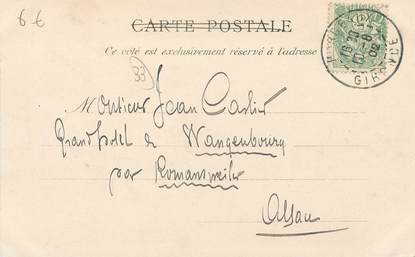 6 €
CARTE POSTALE
Ce côté est exclusivement réservé à l'adresse
33
GIRONDE
Monsieur Jean Carlier
Grand hotel de Wangenbourg
par Romansweiler
Alsace